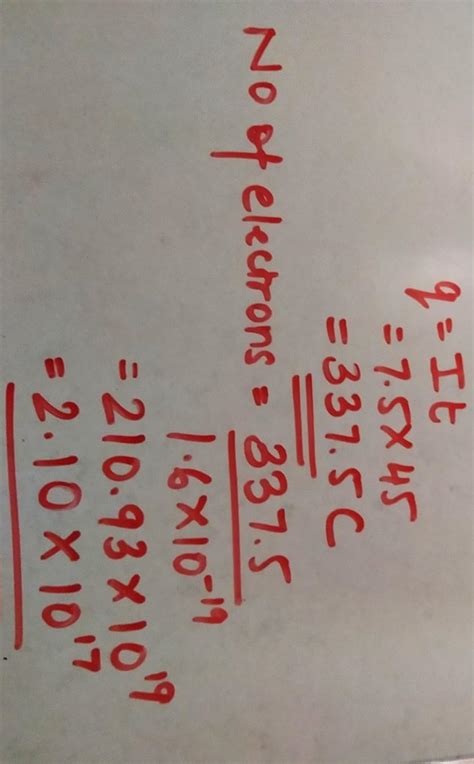 q = It
= 7.5 × 45
= 337.5 C
No of electrons = 337.5
1.6 × 10⁻¹⁹
= 210.93 × 10¹⁹
= 2.10 × 10¹⁷